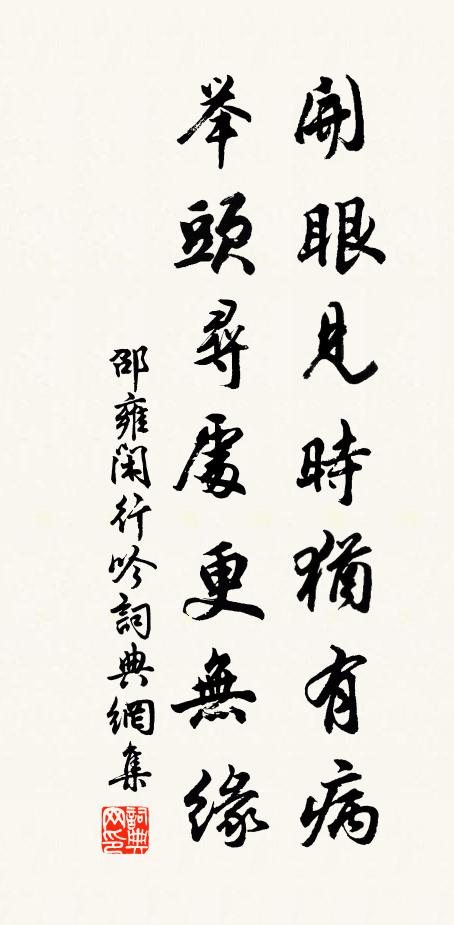 開眼見時猶有病
举頭尋處更無緣
邵雍閑行吟詞典網集
詞典网印